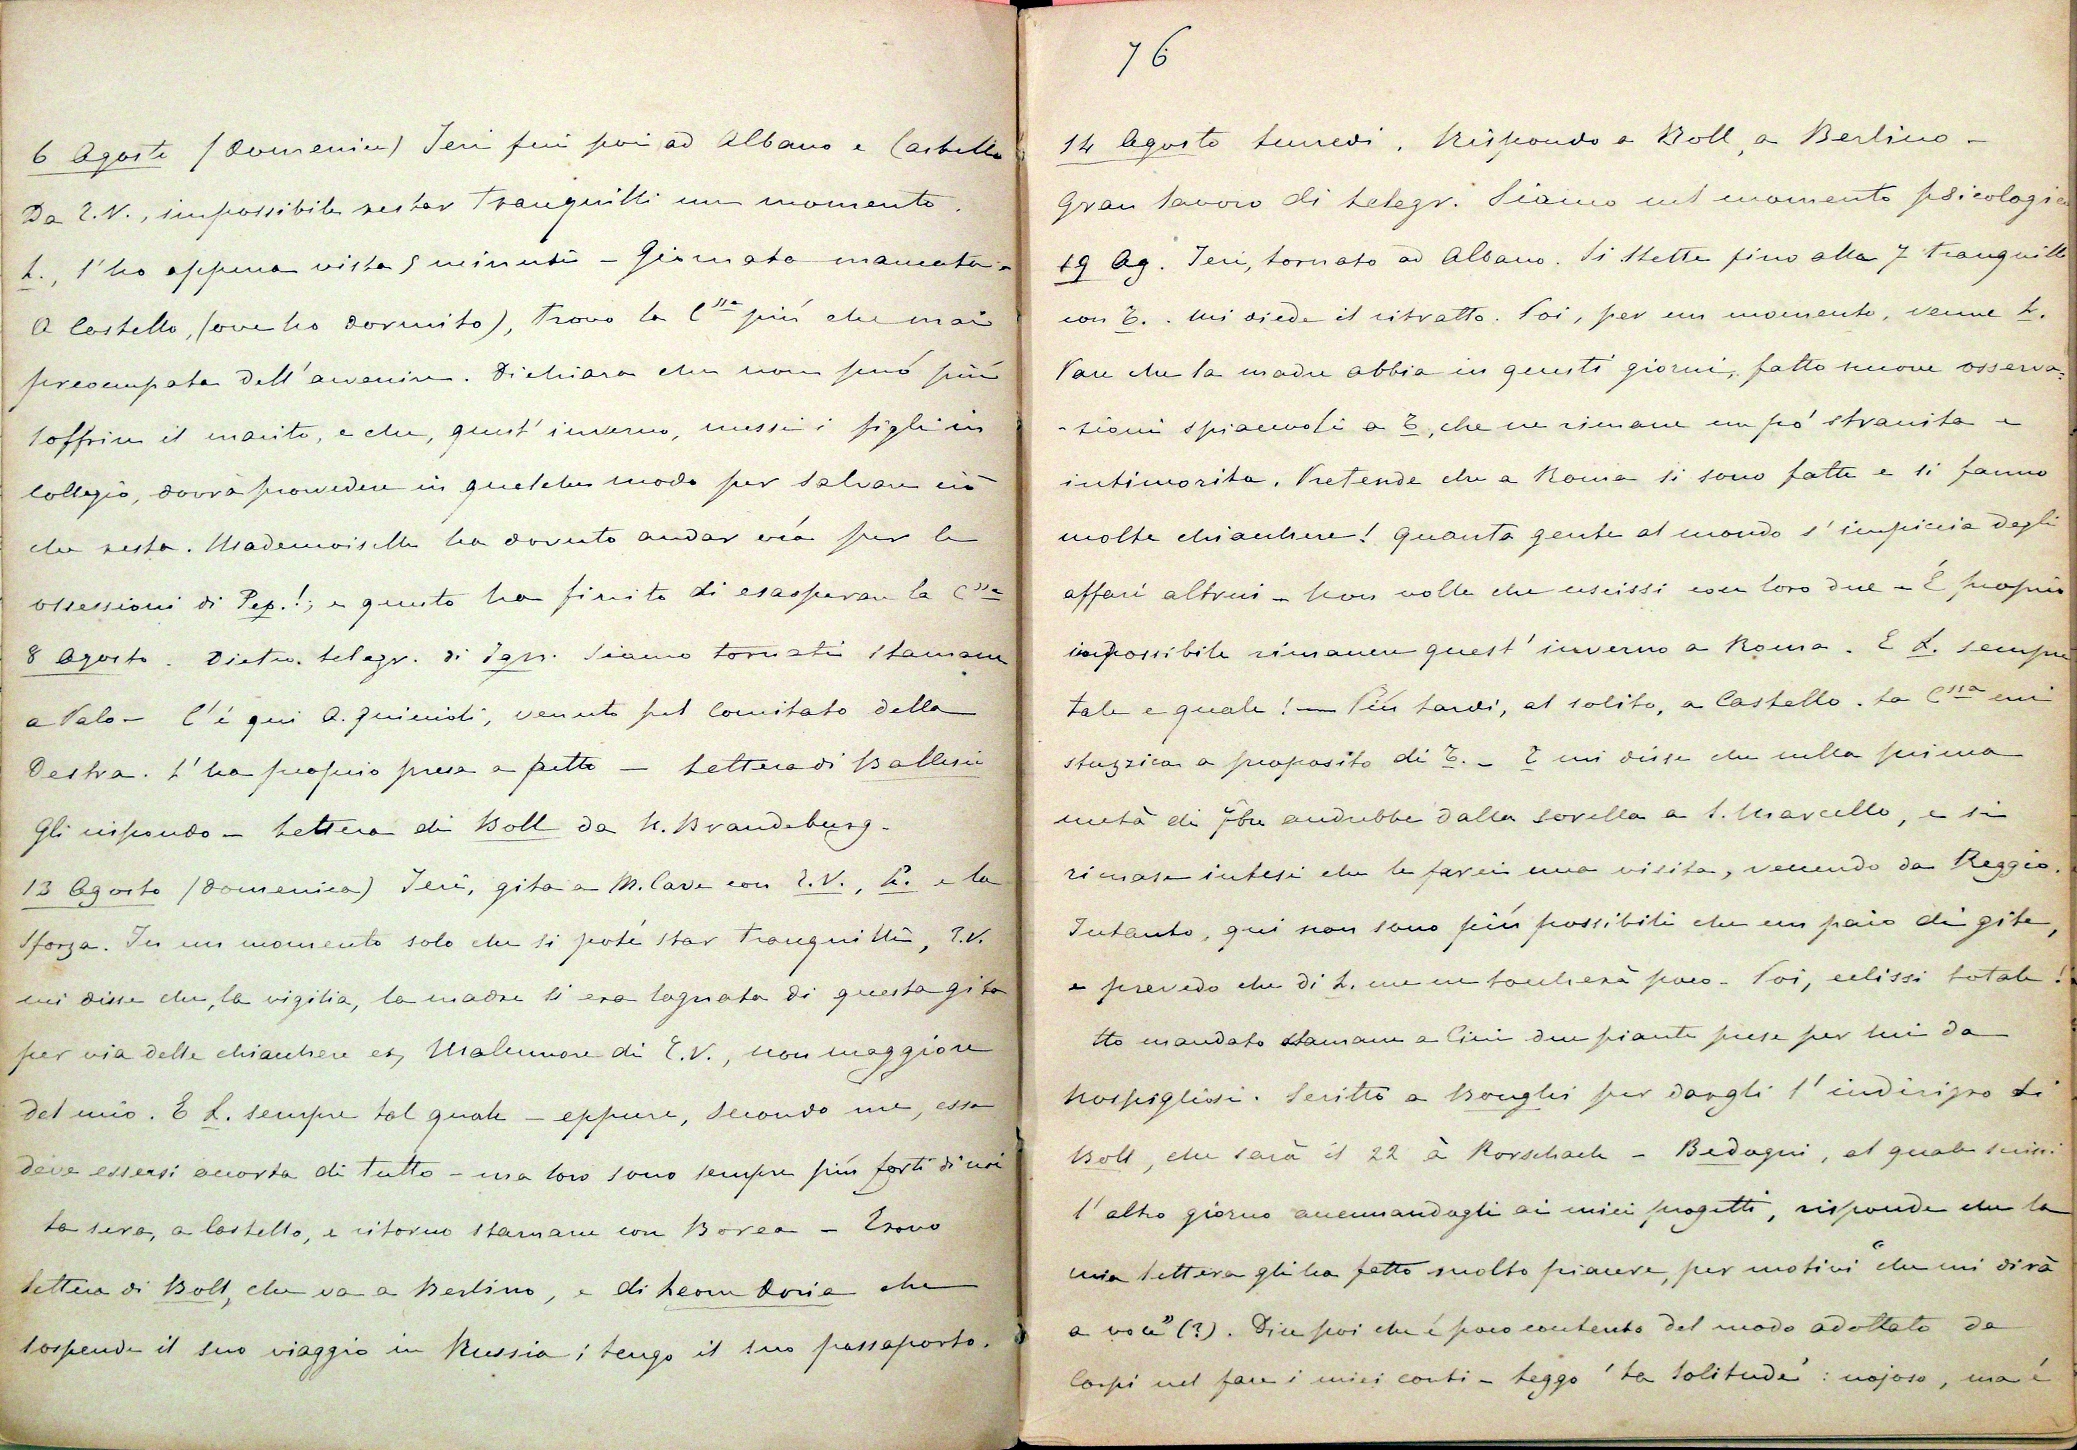 6 Agosto (Domenica) Ieri fui poi ad Albano e Castello
Da E.V., impossibile restar tranquilli un momento.
L., l'ho appena vista 5 minuti – Giornata mancata –
A Castello, (ove ho dormito), trovo la Cssa più che mai
preoccupata dell'avvenire. Dichiara che non può più
soffrire il marito, e che, quest'inverno, messi i figli in
collegio, dovrà provvedere in qualche modo per salvare ciò
che resta. Mademoiselle ha dovuto andar via per le
ossessioni di Pep.!; e questo ha finito di esasperare la Cssa
8 Agosto. Dietro telegr. di Siamo tornati stamane
a Palo – C'è qui A. Guiccioli, venuto pel Comitato della
Destra. L'ha proprio presa a petto – Lettera di Ballerini
Gli rispondo – Lettera di Boll da N. Brandeburg –
13 Agosto (Domenica) Ieri, gita a M. Cave con E.V., L. e la
Sforza. In un momento solo che si poté star tranquilli, E.V.
mi disse che, la vigilia, la madre si era lagnata di questa gita
per via delle chiacchere etc, Malumore di E.V., non maggiore
del mio. E L. sempre tal quale – eppure, secondo me, essa
deve essersi accorta di tutto – ma loro sono sempre più forti di noi
La sera, a Castello, e ritorno stamane con Borea – Trovo
lettera di Boll, che va a Berlino, e di Leone Doria che
sospende il suo viaggio in Russia; tengo il suo passaporto.
76
14 Agosto Lunedi. Rispondo a Boll, a Berlino –
Gran lavoro di telegr. Siamo nel momento psicologico
19 Ag. Ieri, tornato ad Albano. Si stette fino alle 7 tranquilli
con E. . Mi diede il ritratto. Poi, per un momento, venne L.
Pare che la madre abbia in questi giorni, fatto nuove osserva-
-zioni spiacevoli a E, che ne rimane un pó stranita e
intimorita. Pretende che a Roma si sono fatte e si fanno
molte chiacchere! Quanta gente al mondo s'impiccia degli
affari altrui – Non volle che uscissi con loro due – É proprio
impossibile rimanere quest'inverno a Roma. E L. sempre
tale e quale! — Più tardi, al solito, a Castello. La Cssa mi
stuzzica a proposito di E. – E mi disse che nella prima
metà di 7bre andrebbe dalla sorella a S. Marcello, e si
rimase intesi che le farei una visita, venendo da Reggio.
Intanto, qui non sono più possibili che un paio di gite,
e prevedo che di L. me ne toccherà poco – Poi, eclissi totale!
Ho mandato stamane a Cini due piante prese per lui da
Rospigliosi. Scritto a Bonghi per dargli l'indirizzo di
Boll, che sarà il 22 à Rorschach – Bedogni, al quale scrissi
l'altro giorno accennandogli ai miei progetti, risponde che la
mia lettera gli ha fatto molto piacere, per motivi "che mi dirà
a voce" (?). Dice poi che é poco contento del modo adottato da
Carpi nel fare i miei conti – Leggo 'La Solitude' : nojoso, ma é